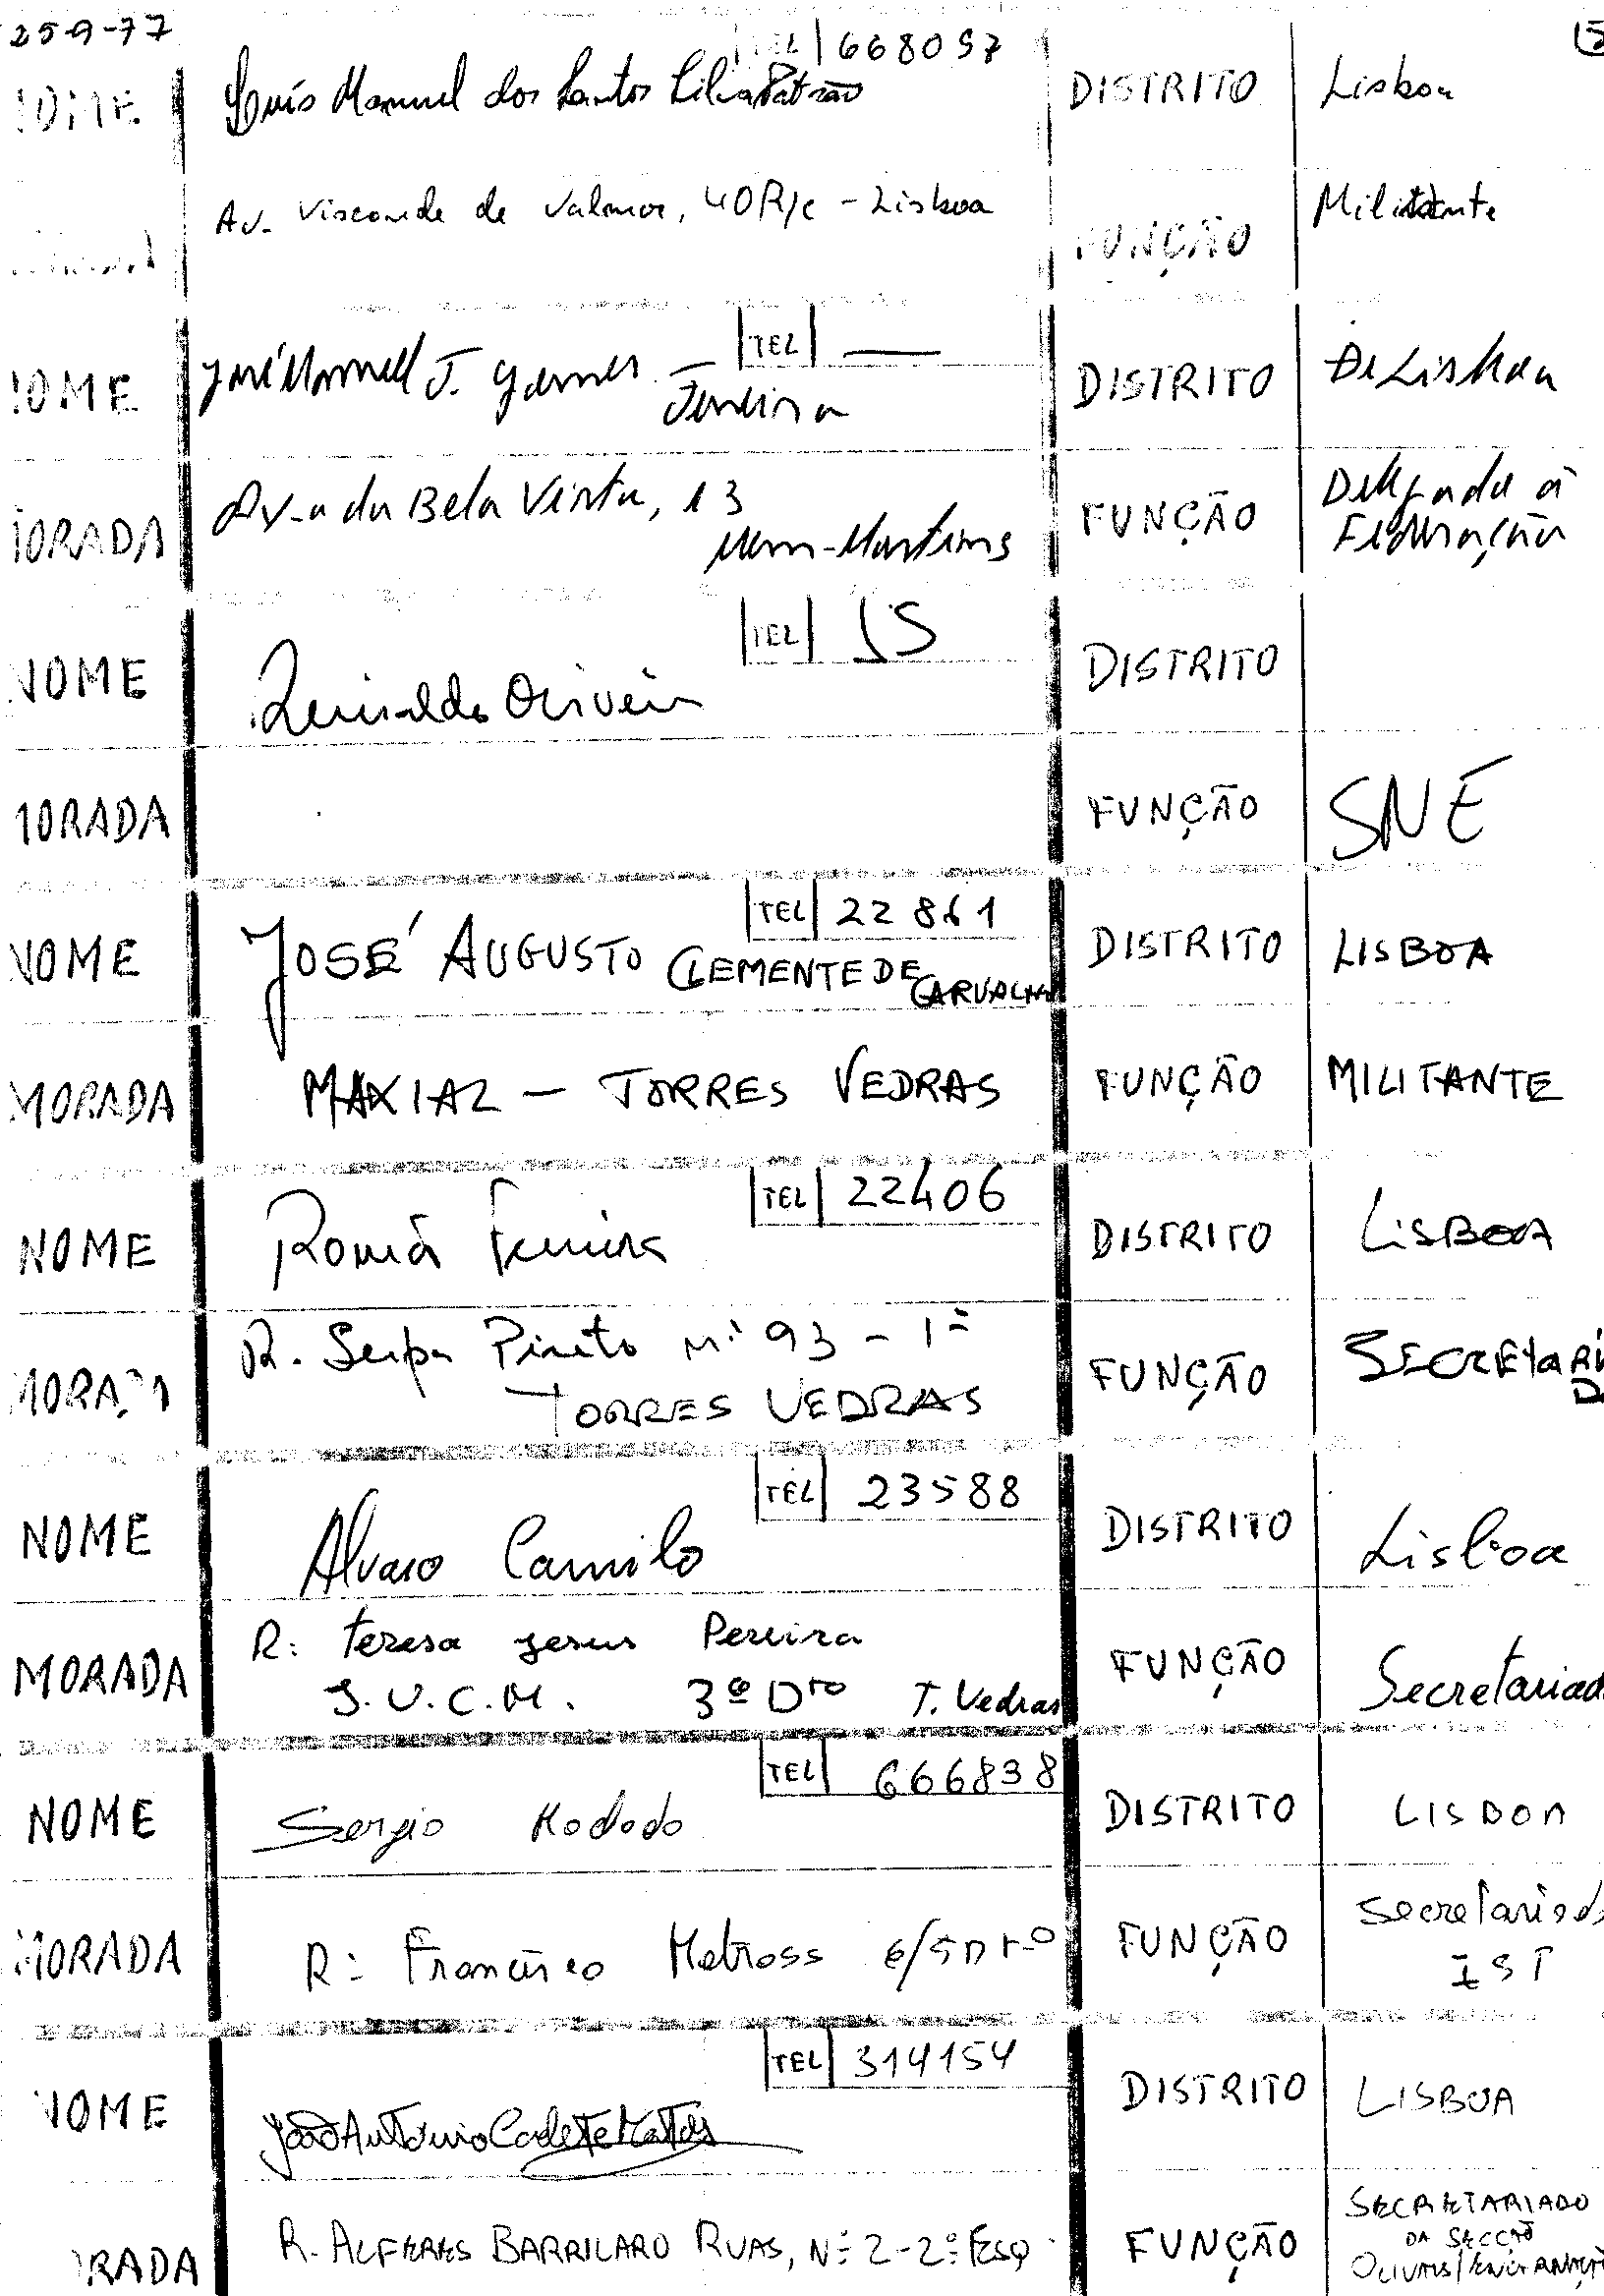 25-9-77
TEL 668097
NOME Luís Manuel dos Santos Silva Patrão DISTRITO Lisboa
Av. Visconde de Valmor, 40 R/c - Lisboa FUNÇÃO Militante
TEL —
NOME José Manuel J. Gomes Ferreira DISTRITO De Lisboa
MORADA Av-a da Bela Vista, 13 FUNÇÃO Delegado à
Mem-Martins Federação
TEL JS
NOME Reinaldo Oliveira DISTRITO
MORADA FUNÇÃO SNE
TEL 22861
NOME JOSÉ AUGUSTO CLEMENTE DE CARVALHO DISTRITO LISBOA
MORADA MAXIAL - TORRES VEDRAS FUNÇÃO MILITANTE
TEL 22406
NOME Romã Ferreira DISTRITO LISBOA
MORADA R. Serpa Pinto nº 93 - 1º FUNÇÃO
TORRES VEDRAS
TEL 23588
NOME Alvaro Camilo DISTRITO Lisboa
MORADA R: Teresa Jesus Pereira FUNÇÃO
J.V.C.M. 3º Dto T. Vedras
TEL 666838
NOME Sergio DISTRITO LISBOA
MORADA R: Francisco 6/5 Dto FUNÇÃO
IST
TEL 314154
NOME João António Cadete Matos DISTRITO LISBOA
MORADA R. ALFERES BARRILARO RUAS, Nº 2-2º ESQ. FUNÇÃO SECRETARIADO
DA SECÇÃO
OLIVAIS/